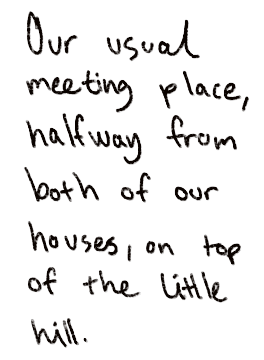 Our usual
meeting place,
halfway from
both of our
houses, on top
of the little
hill.